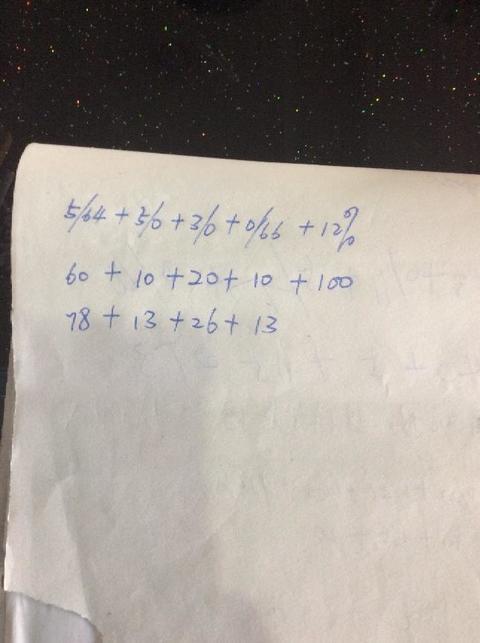 5/64 + 5/0 + 3/0 + 0/66 + 12%
60 + 10 + 20 + 10 + 100
78 + 13 + 26 + 13